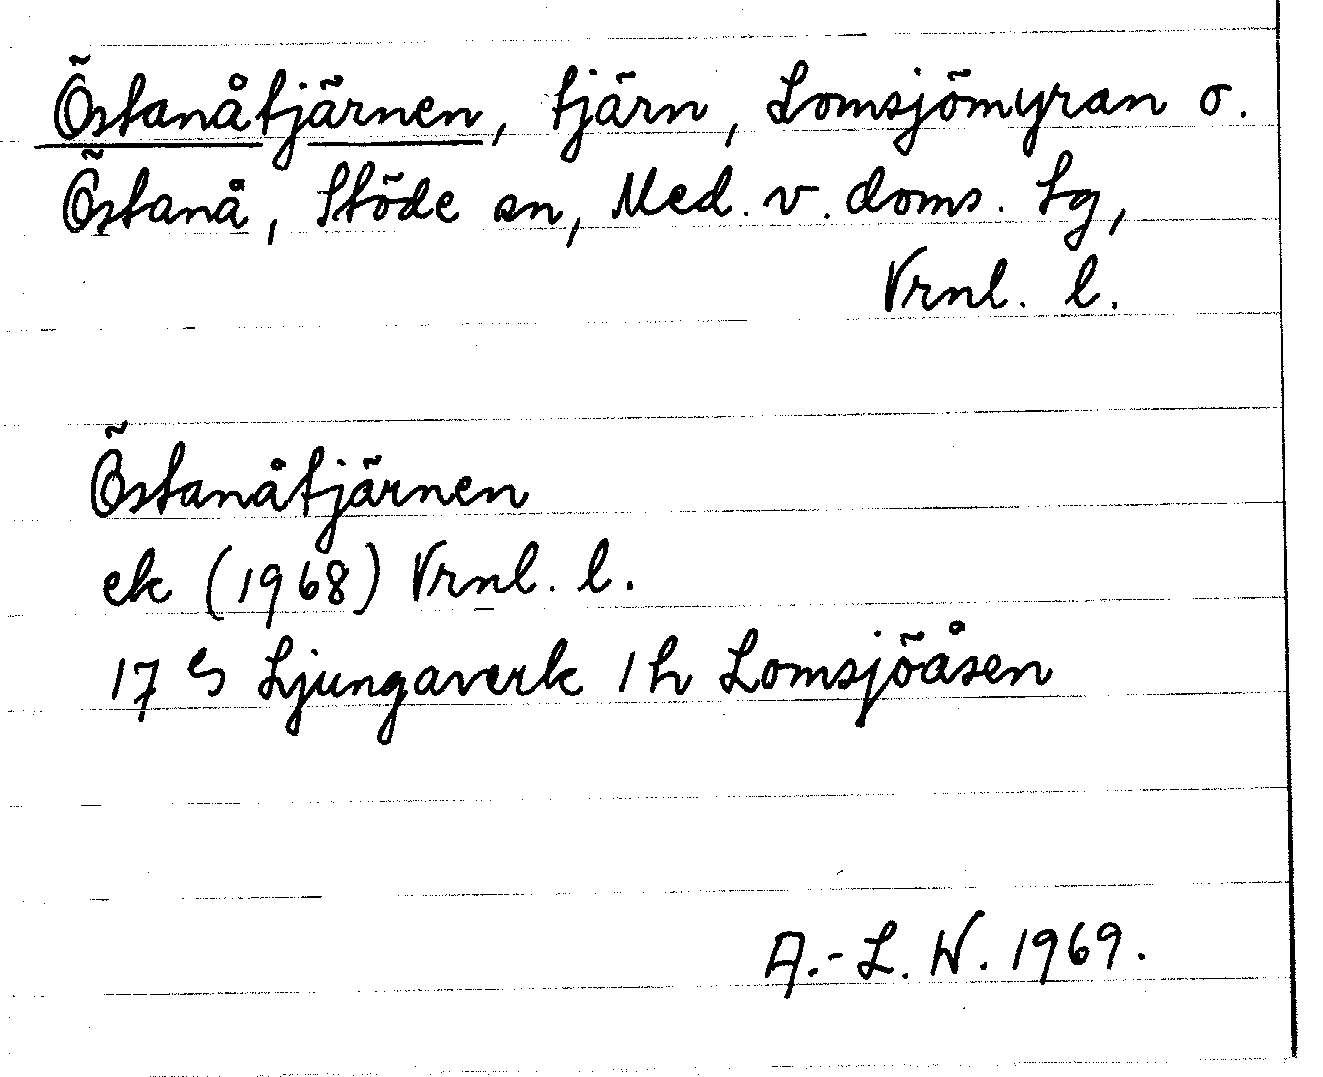 Östanåtjärnen, tjärn, Lomsjömyran o.
Östanå, Stöde sn, Med. v. doms. tg,
Vrnl. l.
Östanåtjärnen
ek (1968) Vrnl. l.
17 G Ljungaverk 1 h Lomsjöåsen
A.-L. W. 1969.